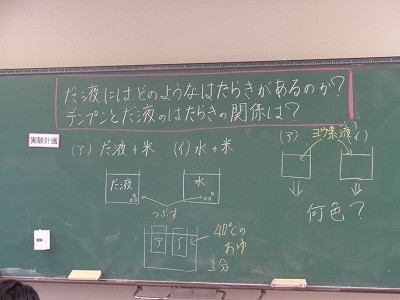 だ液にはどのようなはたらきがあるのか?
デンプンとだ液のはたらきの関係は?
実験計画
(ア) だ液+米 (イ) 水+米
だ液
水
つぶす
ア イ
40℃の
おゆ
3分
(ア) ヨウ素液 イ)
何色?